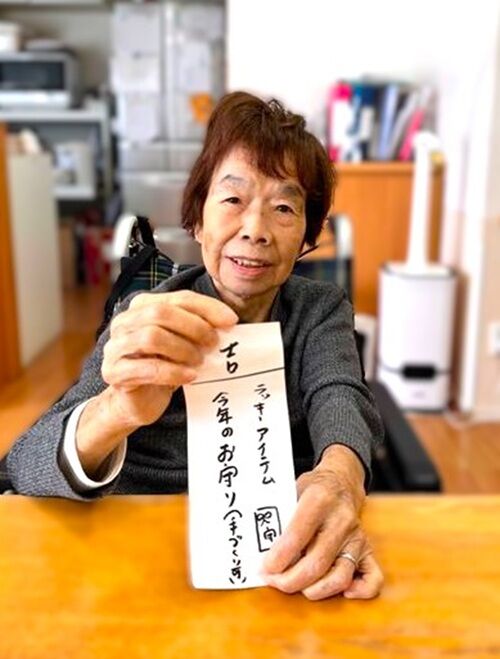 吉
ラッキーアイテム
今年のお守り(手づくり可)